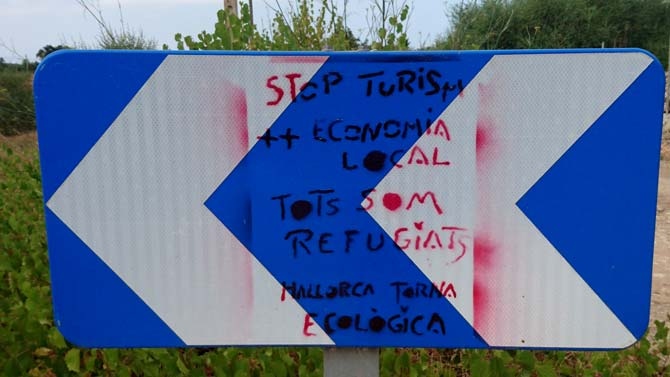 STOP TURISM
++ ECONOMIA
LOCAL
TOTS SOM
REFUGIATS
MALLORCA TORNA
ECOLÒGICA